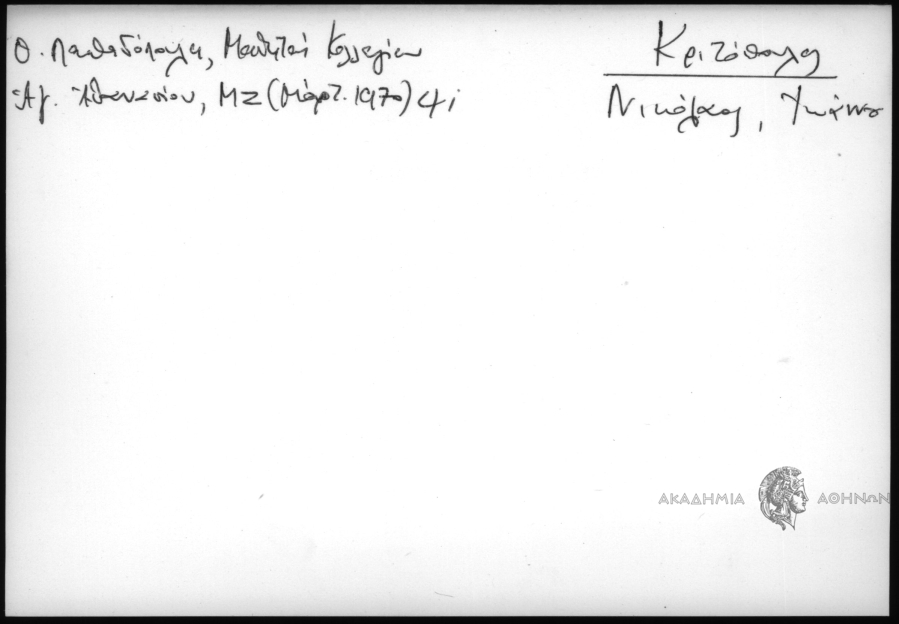 Θ. Παπαδόπουλλου, Μαθηταί Κολλεγίου
Ἁγ. Ἀθανασίου, ΜΖ (Μάρτ. 1970) 41
Κριτόπουλος
Νικόλαος, Ἰωάννου
ΑΚΑΔΗΜΙΑ ΑΘΗΝΩΝ